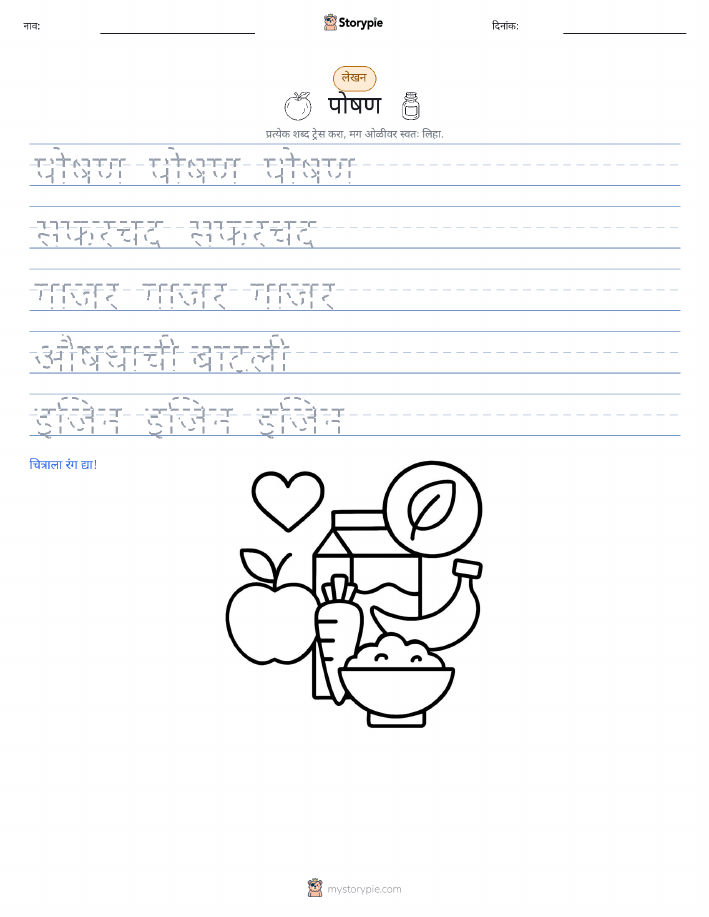 नाव:
Storypie
दिनांक:
लेखन
पोषण
प्रत्येक शब्द ट्रेस करा, मग ओळीवर स्वतः लिहा.
पोषण पोषण पोषण
सफरचंद सफरचंद
गाजर गाजर गाजर
औषधाची बाटली
इजिन इजिन इजिन
चित्राला रंग द्या!
mystorypie.com